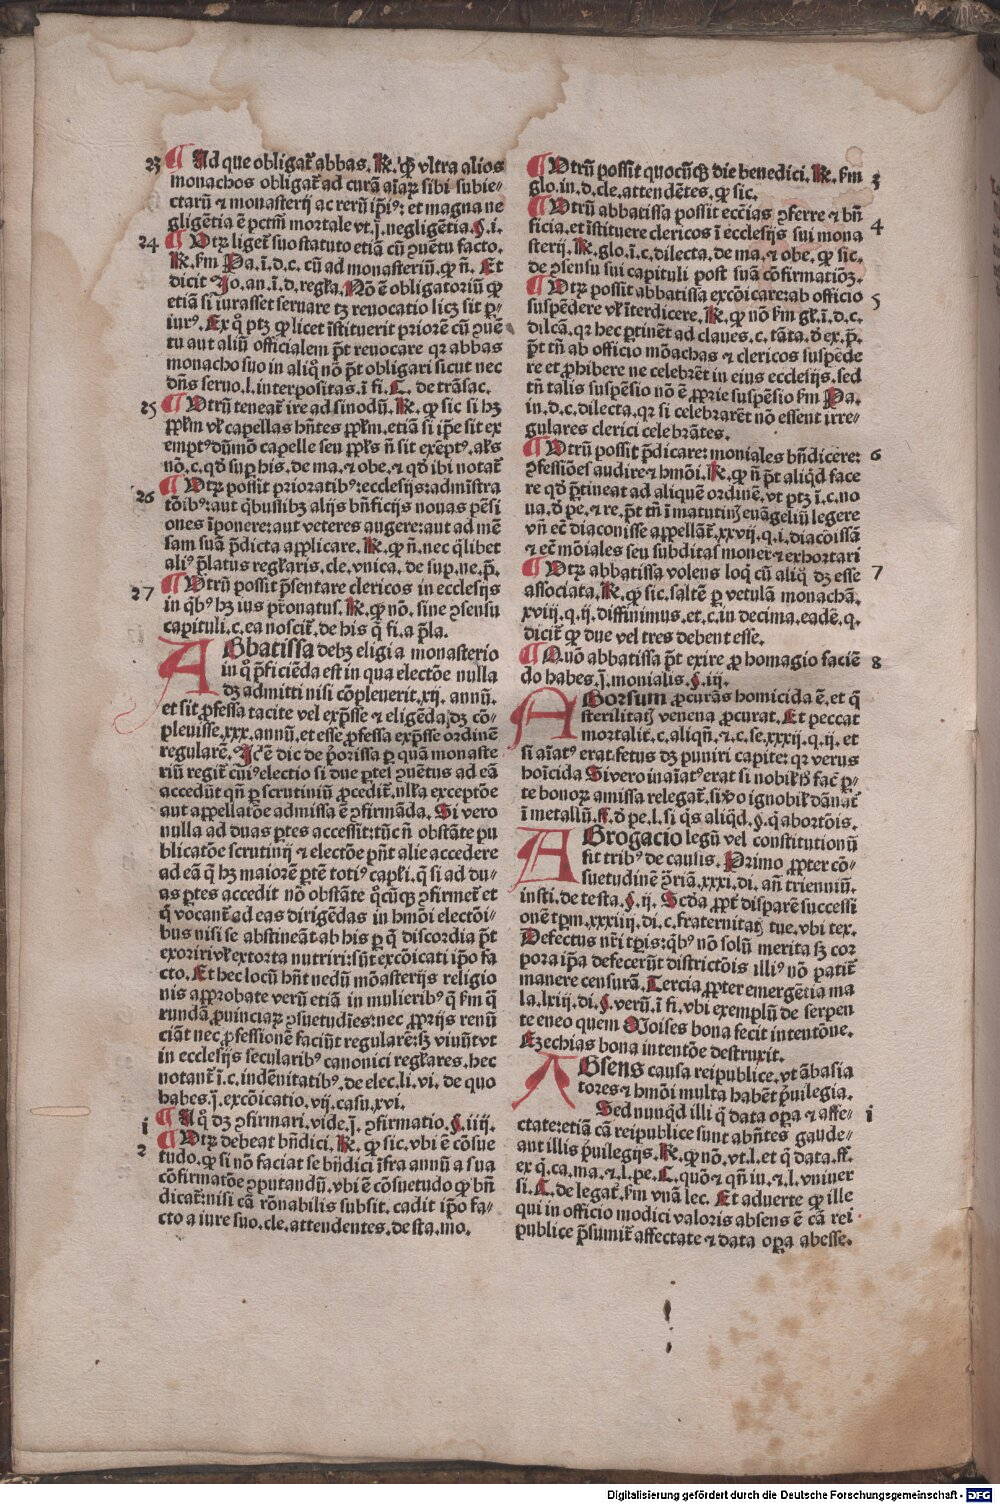 23 ¶ Ad que obligat᷑ abbas. R̃. ꝙ vltra alios
monachos obligat᷑ ad curã aĩaꝝ sibi subie⸗
ctarũ ⁊ monasterij ac rerũ ip̃iꝰ: et magna ne
gligẽtia ẽ pctm̃ mortale vt.j̃.negligẽtia.§.i.
24 ¶ Vtꝝ liget᷑ suo statuto etiã cũ ꝯuẽtu facto.
R̃. ẜm Pa.ĩ.d.c. cũ ad monasteriũ. ꝙ ñ. Et
dicit Jo.an.ĩ.d.regl̃a. Nõ ẽ obligatoriũ ꝙ
etiã si iurasset seruare tꝫ reuocatio licꝫ sit ꝑ⸗
iurꝰ. Ex quo ptꝫ ꝙ licet ĩstituerit priorẽ cũ ꝯuẽ⸗
tu aut aliũ officialem p̃t reuocare qꝛ abbas
monacho suo in aliquo nõ p̃t obligari sicut nec
dñs seruo.l.interpositas.ĩ fi. C. de trãsac.
25 ¶ Vtrũ teneat᷑ ire ad sinodũ. R̃. ꝙ sic si hꝫ
ꝓpl̃m vl̃ capellas hñtes ꝓpl̃m.etiã si ip̃e sit ex
emptꝰ dũmõ capelle seu ꝓpl̃s ñ sit exẽptꝰ.al̃s
nõ.c.qđ suꝑ his.de ma.⁊ obe.⁊ qđ ibi notat᷑
26 ¶ Vtꝝ possit prioratibꝰ:ecclesijs:admĩstra
tõibꝰ:aut q̃bustibꝫ alijs bñficijs nouas pẽsi
ones ĩponere:aut veteres augere:aut ad mẽ
sam suã p̃dicta applicare. R̃. ꝙ ñ.nec q̃libet
aliꝰ p̃latus regl̃aris.cle.vnica.de sup.ne.p̃.
27 ¶ Vtrũ possit p̃sentare clericos in ecclesijs
in q̃bꝰ hꝫ ius pr̃onatus. R̃. ꝙ nõ. sine ꝯsensu
capituli.c.ea noscit᷑.de his q̃ fi.a p̃la.
ABbatissa debꝫ eligi a monasterio
in quo p̃ficiẽda est in qua electõe nulla
dꝫ admitti nisi cõpleuerit.xij. annũ.
et sit ꝓfessa tacite vel exp̃sse ⁊ eligẽda dꝫ cõ⸗
pleuisse.xxx.annũ.et esse ꝓfessa exp̃sse ordinẽ
regularẽ. Jdẽ dic de p̃orissa ꝑ quã monaste
riũ regit᷑ cuiꝰ electio si due ꝑtes ꝯuẽtus ad eã
accedũt qñ ꝑ scrutiniũ ꝓcedit᷑.nl̃la exceptõe
aut appellatõe admissa ẽ ꝯfirmãda. Si vero
nulla ad duas ꝑtes accessit:tũc ñ obstãte pu
blicatõe scrutinij ⁊ electõe pñt alie accedere
ad eã q̃ hꝫ maiorẽ ꝑtẽ totiꝰ capl̃i.q̃ si ad du⸗
as ꝑtes accedit nõ obstãte quocũqꝫ ꝯfirmet᷑ et
q̃ vocant᷑ ad eas dirigẽdas in hmõi electõi⸗
bus nisi se abstineãt ab his ꝑ q̃ discordia p̃t
exoriri vl̃ extorta nutriri:sũt excõicati ip̃o fa
cto. Et hec locũ hñt nedũ mõasterijs religio
nis approbate verũ etiã in mulieribꝰ q̃ ẜm q̃
rundã ꝓuinciaꝝ ꝯsuetudĩes:nec ꝓprijs renũ
ciãt nec ꝓfessionẽ faciũt regularẽ:sꝫ viuũt vt
in ecclesijs secularibꝰ canonici regl̃ares.hec
notant᷑ ĩ.c.indẽnitatibꝰ.de elec.li.vi.de quo
habes.j̃.excõicatio.vij.casu.xvi.
1 ¶ A quo dꝫ ꝯfirmari.vide.j̃. ꝯfirmatio.§.iiij.
2 ¶ Vtꝝ debeat bñdici. R̃. ꝙ sic.vbi ẽ cõsue
tudo.ꝙ si nõ faciat se bñdici ĩfra annũ a sua
cõfirmatõe ꝯputandũ.vbi ẽ cõsuetudo ꝙ bñ
dicat᷑:nisi cã rõnabilis subsit.cadit ip̃o fa⸗
cto a iure suo.cle.attendentes.de sta.mo.
¶ Vtrũ possit quocũqꝫ die benedici. R̃. ẜm 3
glo.in.d.cle.attendẽtes.ꝙ sic.
¶ Vtrũ abbatissa possit ecc̃ias ꝯferre ⁊ bñ
ficia.et ĩstituere clericos ĩ ecclesijs sui mona 4
sterij. R̃.glo.ĩ.c.dilecta.de ma.⁊ obe.ꝙ sic.
de ꝯsensu sui capituli post suã cõfirmatiõꝫ.
¶ Vtꝝ possit abbatissa excõicare:ab officio 5
suspẽdere vl̃ ĩterdicere. R̃. ꝙ nõ ẜm gl̃.ĩ.d.c.
dilcã.qꝛ hec ꝑtinẽt ad claues.c.tãta.đ ex.p̃.
p̃t tñ ab officio mõachas ⁊ clericos suspẽde
re et ꝓhibere ne celebrẽt in eius ecclesijs.sed
tñ talis suspẽsio nõ ẽ ꝓprie suspẽsio ẜm Pa.
in.d.c.dilecta.qꝛ si celebrarẽt nõ essent irre⸗
gulares clerici celebrãtes.
¶ Vtrũ possit p̃dicare:moniales bñdicere: 6
ꝯfessiões audire ⁊ hmõi. R̃. ꝙ ñ p̃t aliq̃d face
re qđ ꝑtineat ad aliquẽ ordinẽ.vt ptꝫ ĩ.c.no
ua.đ pe.⁊ re.p̃t tñ ĩ matutinꝭ euãgeliũ legere
vñ etc̃ diaconisse appellãt᷑.xxvij.q.i.diacõissã
⁊ etc̃ mõiales seu subditas monere ⁊ exhortari
¶ Vtꝝ abbatissa volens loq̃ cũ aliquo dꝫ esse 7
associata. R̃. ꝙ sic.saltẽ ꝑ vetulã monachã.
xviij.q.ij.diffinimus.et.c.in decima.eadẽ.q.
dicit᷑ ꝙ due vel tres debent esse.
¶ Quõ abbatissa p̃t exire ꝓ homagio faciẽ 8
do habes.j̃.monialis.§.iij.
ABorsum ꝓcurãs homicida ẽ.et q̃
sterilitatꝭ venena ꝓcurat. Et peccat
mortalit᷑.c.aliqñ.⁊.c.se.xxxij.q.ij.et
si aĩatꝰ erat fetus dꝫ puniri capite:qꝛ verus
hoĩcida Si vero inaĩatꝰ erat si nobil̃ fac̃ ꝑ⸗
te bonoꝝ amissa relegat᷑.si ꝟo ignobil̃ dãnat᷑
ĩ metallũ.ff.đ pe.l.si q̃s aliq̃d.§.q̃ abortõis.
ABrogacio legũ vel constitutionũ
fit tribꝰ de causis. Primo ꝓpter cõ⸗
suetudinẽ ꝯr̃iã.xxxi.di.añ trienniũ.
insti.de testa.§.ij. Scđa ꝓpt᷑ disparẽ successi
onẽ tp̃m.xxxiiij.di.c.fraternitatꝭ tue.vbi tex.
Defectus nr̃i tp̃is:q̃bꝰ nõ solũ merita sꝫ cor
pora ip̃a defecerũt districtõis illiꝰ nõ patit᷑
manere censurã. Tercia ꝓpter emergẽtia ma
la.lxiij.di.§.verũ.ĩ fi.vbi exemplũ de serpen
te eneo quem Moises bona fecit intentõne.
Ezechias bona intentõe destruxit.
ABsens causa reipublice.vt ãbasia
tores ⁊ hmõi multa habẽt p̃uilegia.
Sed nunqđ illi q̃ data oꝑa ⁊ affe⸗ 1
ctate:etiã cã reipublice sunt abñtes gaude⸗
ant illis p̃uilegijs. R̃. ꝙ nõ.vt.l.et q̃ data.ff.
ex q̃.ca.ma.⁊.l.pe. C.quõ ⁊ qñ iu.⁊.l.vniuer
si. C. de legat᷑.ẜm vnã lec. Et aduerte ꝙ ille
qui in officio modici valoris absens ẽ cã rei
publice p̃sumit᷑ affectate ⁊ data oꝑa abesse.
Digitalisierung gefördert durch die Deutsche Forschungsgemeinschaft - DFG